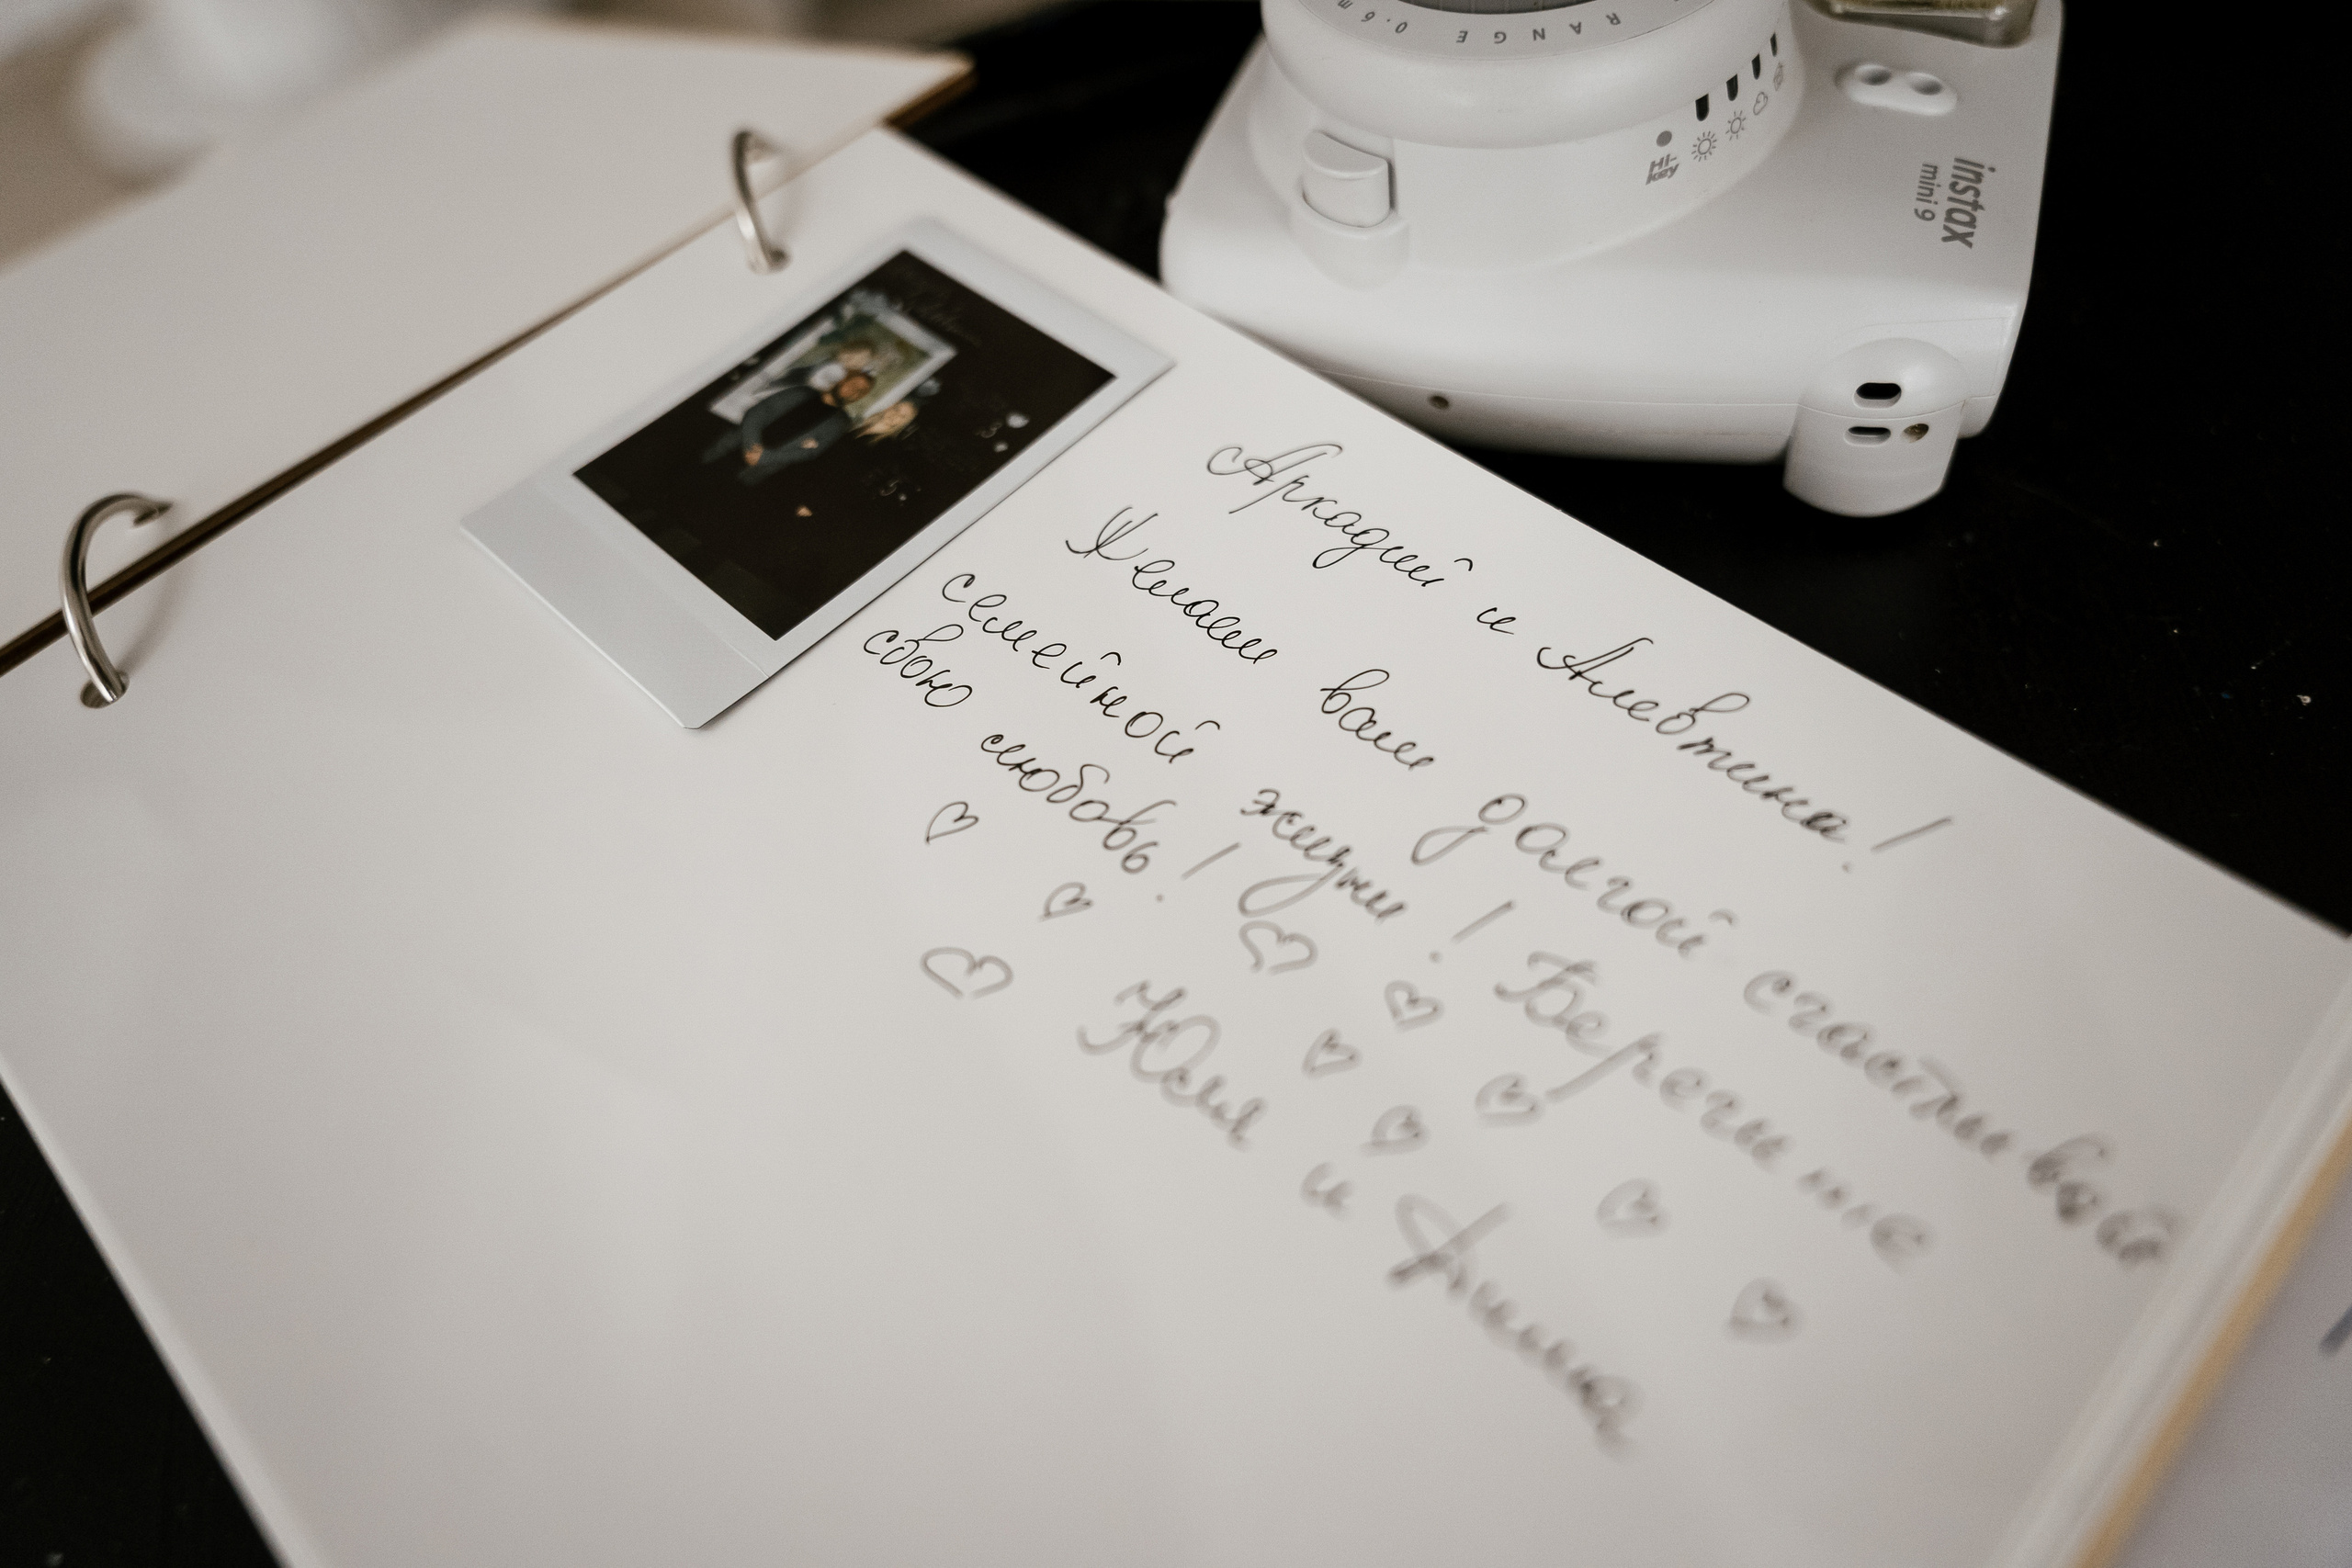 RANGE 0.6m
Hi-key
instax
mini 9
Аркадий и Алевтина!
Желаем вам долгой счастливой
семейной жизни! Берегите
свою любовь!
Юля и Арина